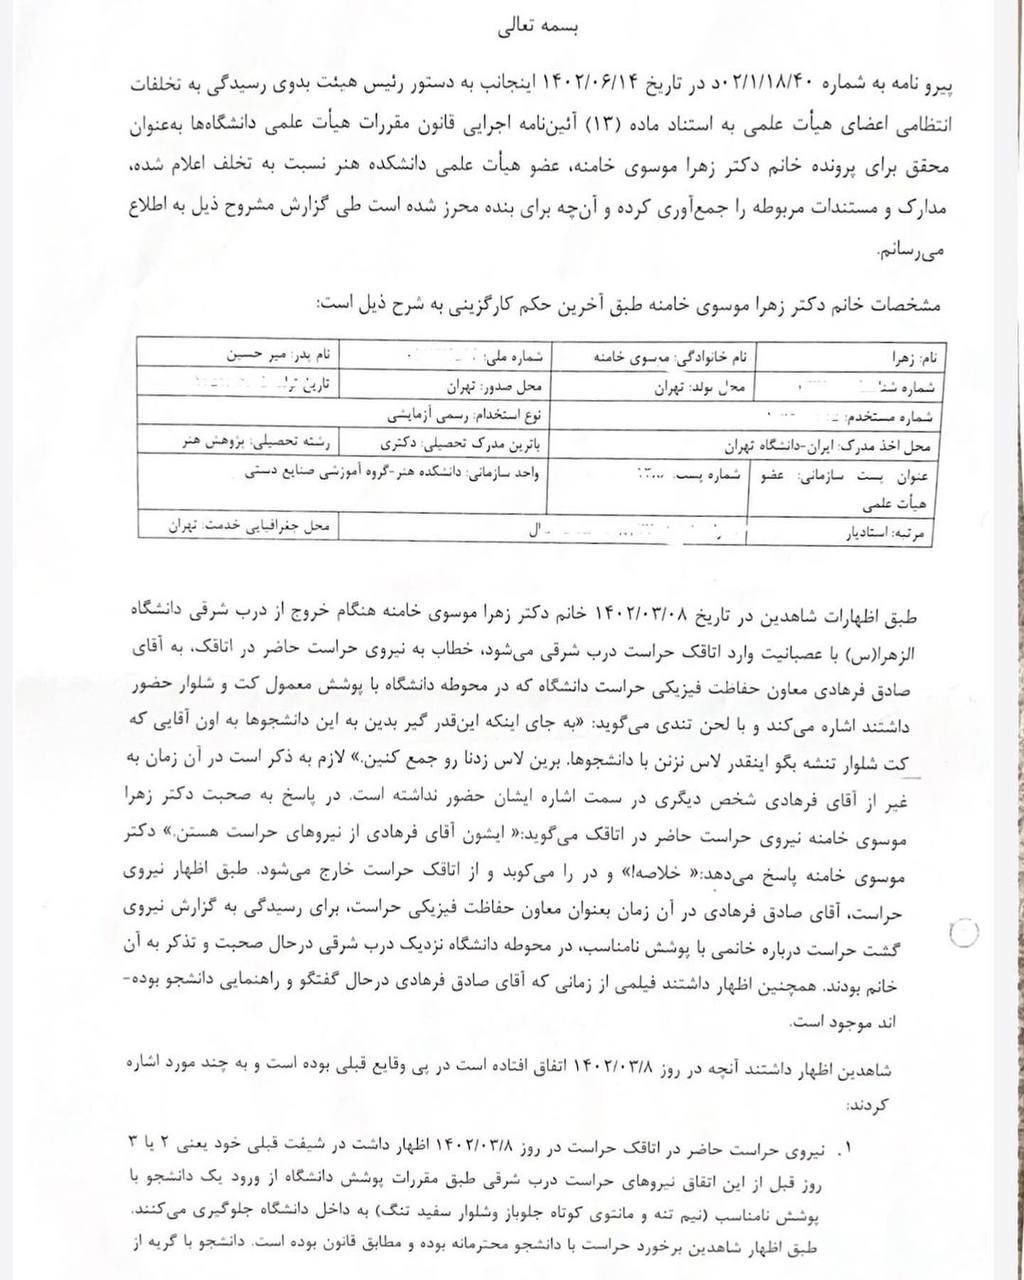 بسمه تعالی
پیرو نامه به شماره ۰۲/۱/۱۸/۴۰د در تاریخ ۱۴۰۲/۰۶/۱۴ اینجانب به دستور رئیس هیئت بدوی رسیدگی به تخلفات
انتظامی اعضای هیأت علمی به استناد ماده (۱۳) آئین‌نامه اجرایی قانون مقررات هیأت علمی دانشگاه‌ها به‌عنوان
محقق برای پرونده خانم دکتر زهرا موسوی خامنه، عضو هیأت علمی دانشکده هنر نسبت به تخلف اعلام شده،
مدارک و مستندات مربوطه را جمع‌آوری کرده و آن‌چه برای بنده محرز شده است طی گزارش مشروح ذیل به اطلاع
می‌رسانم.
مشخصات خانم دکتر زهرا موسوی خامنه طبق آخرین حکم کارگزینی به شرح ذیل است:
نام: زهرا نام خانوادگی: موسوی خامنه شماره ملی: نام پدر: میر حسین
شماره محل تولد: تهران محل صدور: تهران تاریخ
شماره مستخدم: نوع استخدام: رسمی آزمایشی
محل اخذ مدرک: ایران-دانشگاه تهران باترین مدرک تحصیلی: دکتری رشته تحصیلی: پژوهش هنر
عنوان پست سازمانی: عضو شماره پست: واحد سازمانی: دانشکده هنر-گروه آموزشی صنایع دستی
هیأت علمی
مرتبه: استادیار محل جغرافیایی خدمت: تهران
طبق اظهارات شاهدین در تاریخ ۱۴۰۲/۰۳/۰۸ خانم دکتر زهرا موسوی خامنه هنگام خروج از درب شرقی دانشگاه
الزهرا(س) با عصبانیت وارد اتاقک حراست درب شرقی می‌شود، خطاب به نیروی حراست حاضر در اتاقک، به آقای
صادق فرهادی معاون حفاظت فیزیکی حراست دانشگاه که در محوطه دانشگاه با پوشش معمول کت و شلوار حضور
داشتند اشاره می‌کند و با لحن تندی می‌گوید: «به جای اینکه این‌قدر گیر بدین به این دانشجوها به اون آقایی که
کت شلوار تنشه بگو اینقدر لاس نزنن با دانشجوها. برین لاس زدنا رو جمع کنین.» لازم به ذکر است در آن زمان به
غیر از آقای فرهادی شخص دیگری در سمت اشاره ایشان حضور نداشته است. در پاسخ به صحبت دکتر زهرا
موسوی خامنه نیروی حراست حاضر در اتاقک می‌گوید:« ایشون آقای فرهادی از نیروهای حراست هستن.» دکتر
موسوی خامنه پاسخ می‌دهد:« خلاصه!» و در را می‌کوبد و از اتاقک حراست خارج می‌شود. طبق اظهار نیروی
حراست، آقای صادق فرهادی در آن زمان بعنوان معاون حفاظت فیزیکی حراست، برای رسیدگی به گزارش نیروی
گشت حراست درباره خانمی با پوشش نامناسب، در محوطه دانشگاه نزدیک درب شرقی درحال صحبت و تذکر به آن
خانم بودند. همچنین اظهار داشتند فیلمی از زمانی که آقای صادق فرهادی درحال گفتگو و راهنمایی دانشجو بوده-
اند موجود است.
شاهدین اظهار داشتند آنچه در روز ۱۴۰۲/۰۳/۸ اتفاق افتاده است در پی وقایع قبلی بوده است و به چند مورد اشاره
کردند:
۱. نیروی حراست حاضر در اتاقک حراست در روز ۱۴۰۲/۰۳/۸ اظهار داشت در شیفت قبلی خود یعنی ۲ یا ۳
روز قبل از این اتفاق نیروهای حراست درب شرقی طبق مقررات پوشش دانشگاه از ورود یک دانشجو با
پوشش نامناسب (نیم تنه و مانتوی کوتاه جلوباز وشلوار سفید تنگ) به داخل دانشگاه جلوگیری می‌کنند.
طبق اظهار شاهدین برخورد حراست با دانشجو محترمانه بوده و مطابق قانون بوده است. دانشجو با گریه از